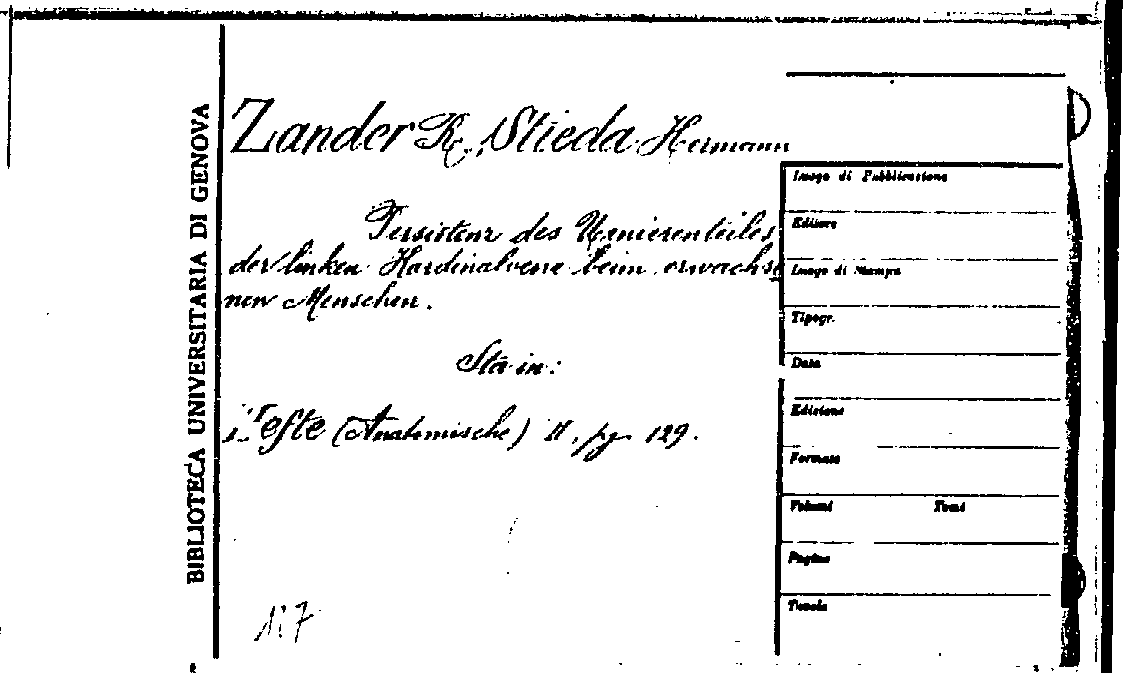 BIBLIOTECA UNIVERSITARIA DI GENOVA
Zander R., Stieda Hermann
Persistenz des Urnierenteiles
der linken Kardinalvene beim erwachse
nen Menschen.
Sta in:
Hefte (Anatomische) II, pg. 129.
Luogo di Pubblicazione
Editore
Luogo di Stampa
Tipogr.
Data
Edizione
Formato
Volumi Tomi
Pagine
Tavole